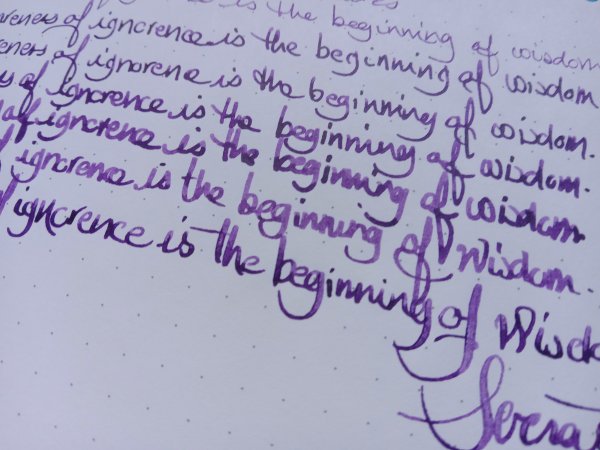 is the beginning of wisdom
of ignorence is the beginning of wisdom
of ignorene is the beginning of wisdom.
of ignorence is the beginning of wisdom.
of ignorence is the beginning of wisdom.
ignorence is the beginning of Wisdom.
ignorence is the beginning of